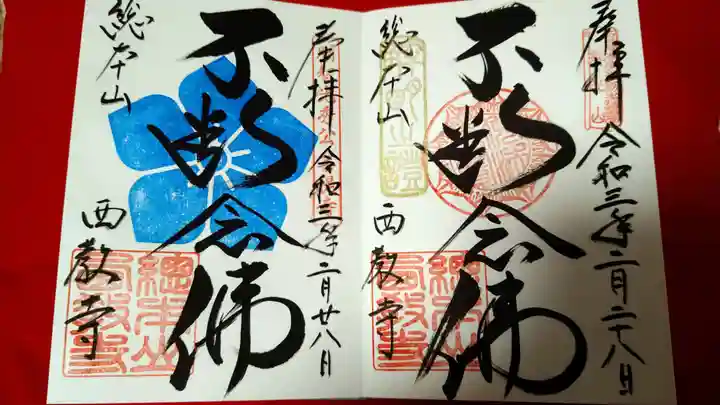 奉拝
令和三年二月二十八日
不断念佛
総本山
西教寺
總本山
西教寺
奉拝
令和三年二月廿八日
不断念佛
総本山
西教寺
總本山
西教寺